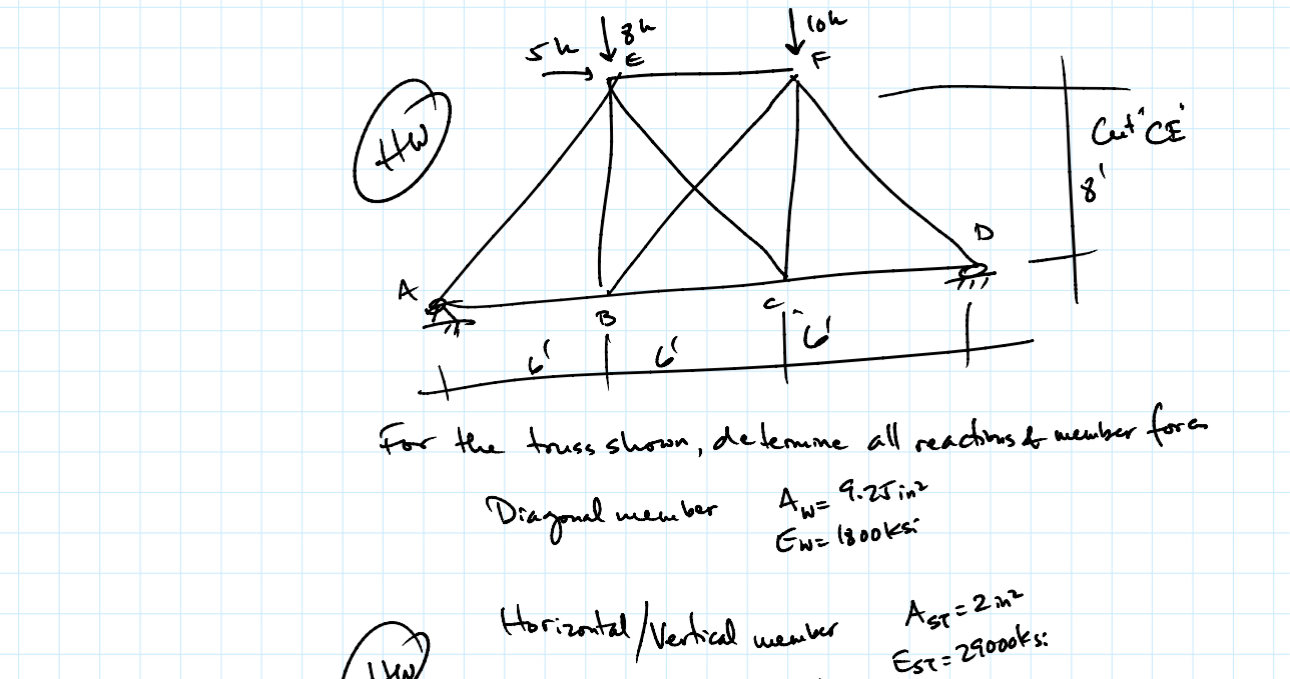 5k 8k 10k
E F
HW
Cut "CE"
8'
D
A
B C
6' 6' 6'
For the truss shown, determine all reactions & member forces
Diagonal member Aw = 9.25 in²
Ew = 1800 ksi
Horizontal/Vertical member AST = 2 in²
EST = 29000 ksi
HW